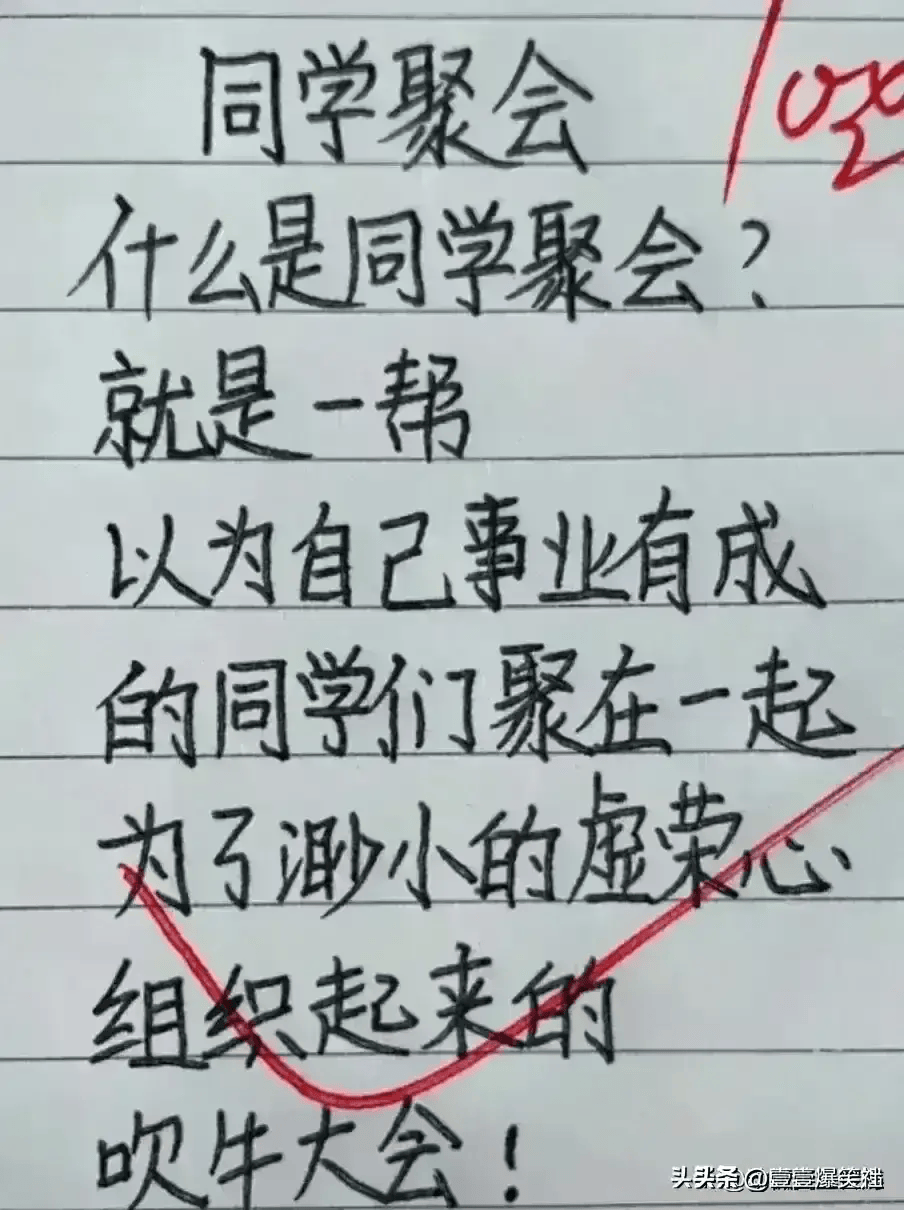 同学聚会
100
什么是同学聚会？
就是一帮
以为自己事业有成
的同学们聚在一起
为了渺小的虚荣心
组织起来的
吹牛大会！
头头条@壹壹爆笑社